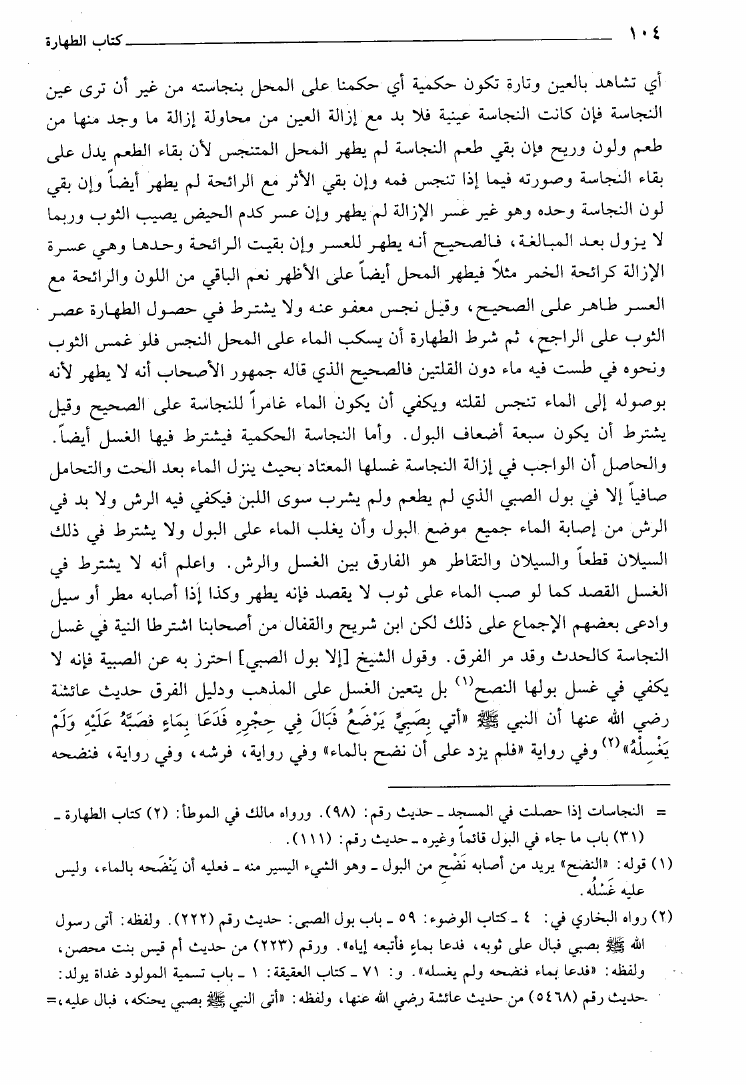 ١٠٤ كتاب الطهارة
أي تشاهد بالعين وتارة تكون حكمية أي حكمنا على المحل بنجاسته من غير أن ترى عين
النجاسة فإن كانت النجاسة عينية فلا بد مع إزالة العين من محاولة إزالة ما وجد منها من
طعم ولون وريح فإن بقي طعم النجاسة لم يطهر المحل المتنجس لأن بقاء الطعم يدل على
بقاء النجاسة وصورته فيما إذا تنجس فمه وإن بقي الأثر مع الرائحة لم يطهر أيضاً وإن بقي
لون النجاسة وحده وهو غير عسر الإزالة لم يطهر وإن عسر كدم الحيض يصيب الثوب وربما
لا يزول بعد المبالغة، فالصحيح أنه يطهر للعسر وإن بقيت الرائحة وحدها وهي عسرة
الإزالة كرائحة الخمر مثلاً فيطهر المحل أيضاً على الأظهر نعم الباقي من اللون والرائحة مع
العسر طاهر على الصحيح، وقيل نجس معفو عنه ولا يشترط في حصول الطهارة عصر
الثوب على الراجح، ثم شرط الطهارة أن يسكب الماء على المحل النجس فلو غمس الثوب
ونحوه في طست فيه ماء دون القلتين فالصحيح الذي قاله جمهور الأصحاب أنه لا يطهر لأنه
بوصوله إلى الماء تنجس لقلته ويكفي أن يكون الماء غامراً للنجاسة على الصحيح وقيل
يشترط أن يكون سبعة أضعاف البول. وأما النجاسة الحكمية فيشترط فيها الغسل أيضاً.
والحاصل أن الواجب في إزالة النجاسة غسلها المعتاد بحيث ينزل الماء بعد الحت والتحامل
صافياً إلا في بول الصبي الذي لم يطعم ولم يشرب سوى اللبن فيكفي فيه الرش ولا بد في
الرش من إصابة الماء جميع موضع البول وأن يغلب الماء على البول ولا يشترط في ذلك
السيلان قطعاً والسيلان والتقاطر هو الفارق بين الغسل والرش. واعلم أنه لا يشترط في
الغسل القصد كما لو صب الماء على ثوب لا يقصد فإنه يطهر وكذا إذا أصابه مطر أو سيل
وادعى بعضهم الإجماع على ذلك لكن ابن شريح والقفال من أصحابنا اشترطا النية في غسل
النجاسة كالحدث وقد مر الفرق. وقول الشيخ [إلا بول الصبي] احترز به عن الصبية فإنه لا
يكفي في غسل بولها النضح(١) بل يتعين الغسل على المذهب ودليل الفرق حديث عائشة
رضي الله عنها أن النبي ﷺ «أتي بِصَبِيٍّ يَرْضَعُ فَبَالَ فِي حِجْرِهِ فَدَعَا بِمَاءٍ فَصَبَّهُ عَلَيْهِ وَلَمْ
يَغْسِلْهُ»(٢) وفي رواية «فلم يزد على أن نضح بالماء» وفي رواية، فرشه، وفي رواية، فنضحه
= النجاسات إذا حصلت في المسجد ـ حديث رقم: (٩٨). ورواه مالك في الموطأ: (٢) كتاب الطهارة ـ
(٣١) باب ما جاء في البول قائماً وغيره ـ حديث رقم: (١١١).
(١) قوله: «النضح» يريد من أصابه نَضْحٍ من البول ـ وهو الشيء اليسير منه ـ فعليه أن يَنْضَحه بالماء، وليس
عليه غَسْلُه.
(٢) رواه البخاري في: ٤ ـ كتاب الوضوء: ٥٩ ـ باب بول الصبي: حديث رقم (٢٢٢). ولفظه: أتى رسول
الله ﷺ بصبي فبال على ثوبه، فدعا بماءٍ فأتبعه إياه». ورقم (٢٢٣) من حديث أم قيس بنت محصن،
ولفظه: «فدعا بماء فنضحه ولم يغسله». و: ٧١ ـ كتاب العقيقة: ١ ـ باب تسمية المولود غداة يولد:
حديث رقم (٥٤٦٨) من حديث عائشة رضي الله عنها، ولفظه: «أتى النبي ﷺ بصبي يحنكه، فبال عليه،=